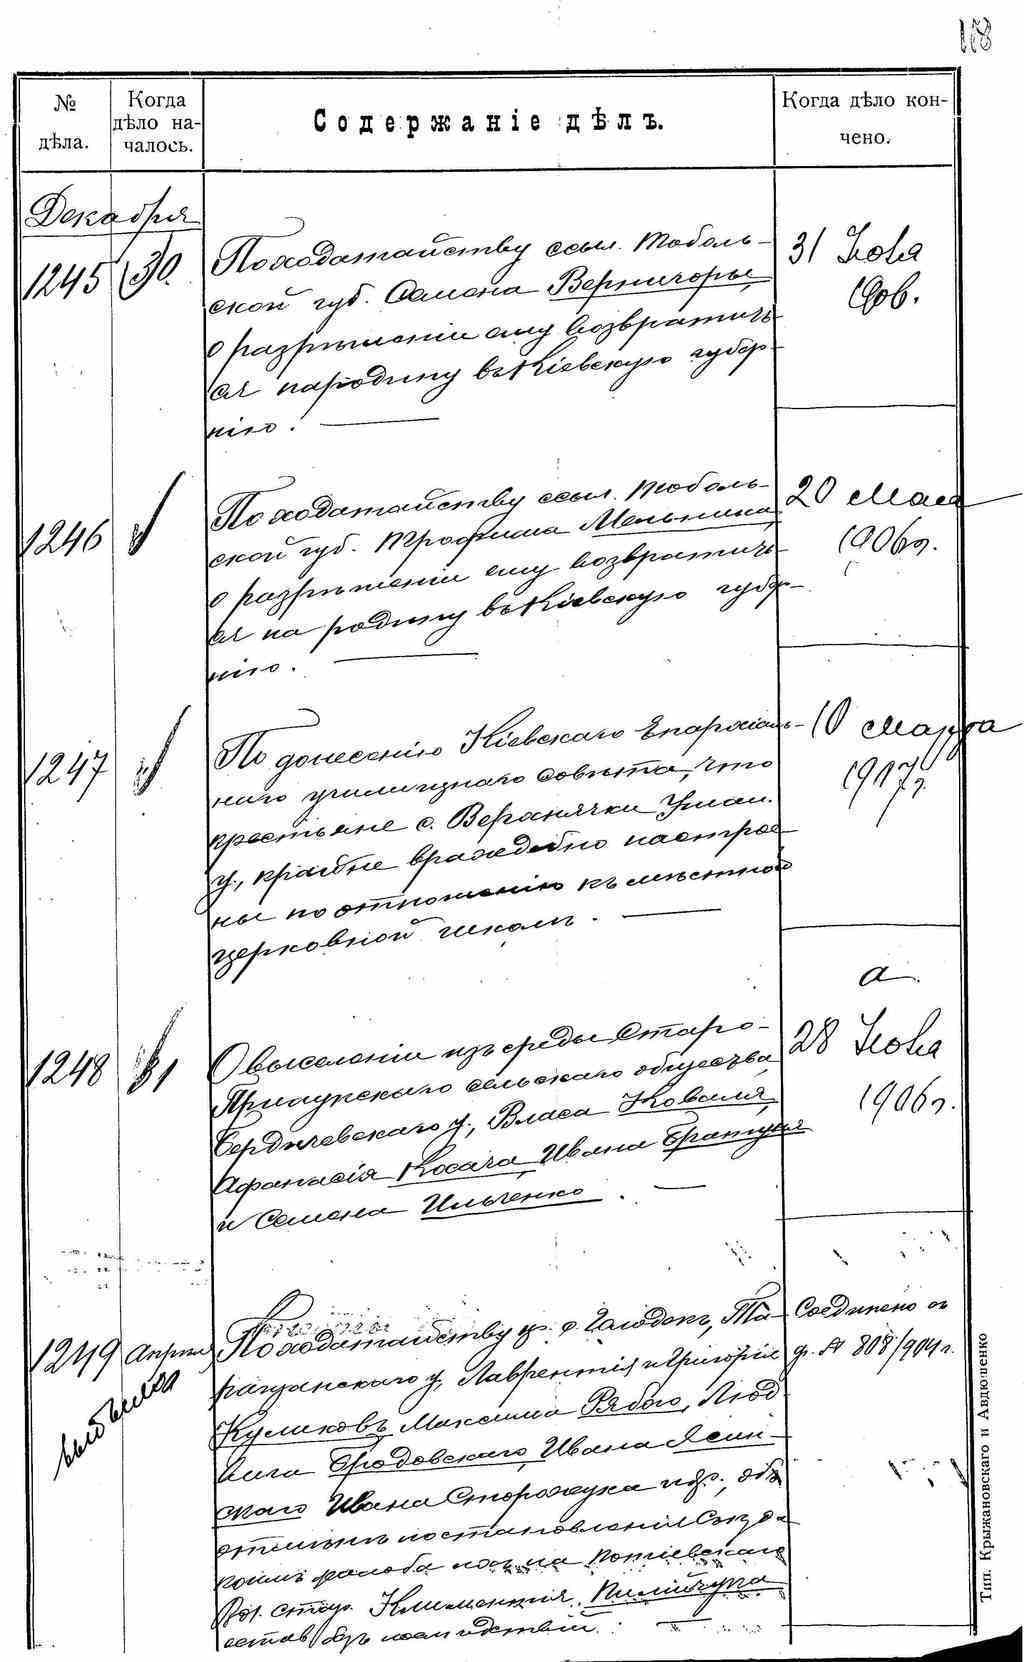 118
№ дѣла.
Когда дѣло на-чалось.
Содержаніе дѣлъ.
Когда дѣло кон-чено.
Декабря
1245
30.
По ходатайству ссыл. Тоболь-
ской губ. Семена Верничоры,
о разрѣшеніи ему возвратить-
ся на родину въ Кіевскую губер-
нію.
31 Іюля
906.
1246
По ходатайству ссыл. Тоболь-
ской губ. Трофима Мельника,
о разрѣшеніи ему возвратить-
ся на родину въ Кіевскую губер-
нію.
20 Мая
1906 г.
1247
По донесенію Кіевскаго Епархіаль-
наго училищнаго Совѣта, что
крестьяне с. Веранячки Уман.
у., крайне враждебно настрое-
ны по отношенію къ мѣстной
церковной школѣ.
10 Марта
1917 г.
а
1248
31
О выселеніи изъ среды Старо-
Прилукскаго сельскаго общества,
Бердичевскаго у., Власа Коваля,
Афанасія Косача, Ивана Братуня
и Семена Ильченко.
28 Іюля
1906 г.
1249
Апрѣля
выбыло
По ходатайству кр. с. Голодекъ, Та-
ращанскаго у., Лаврентія и Григорія
Куликовъ, Максима Рябого, Люд-
вига Бродовскаго, Ивана Ясин-
скаго Ивана Сторожука и др., объ
отмѣнѣ постановленія
жалоба на
стар. Климентія Килійчука
остав. безъ послѣдствій.
Соединено съ
д. № 808/904 г.
Тип. Крыжановскаго и Авдюшенко